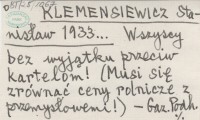 KLEMENSIEWICZ Sta-
nisław 1933... Wszyscy
bez wyjątku przeciw
kartelom! (Musi się
zrównać ceny rolnicze z
przemysłowemi!) – Gaz. Porh.